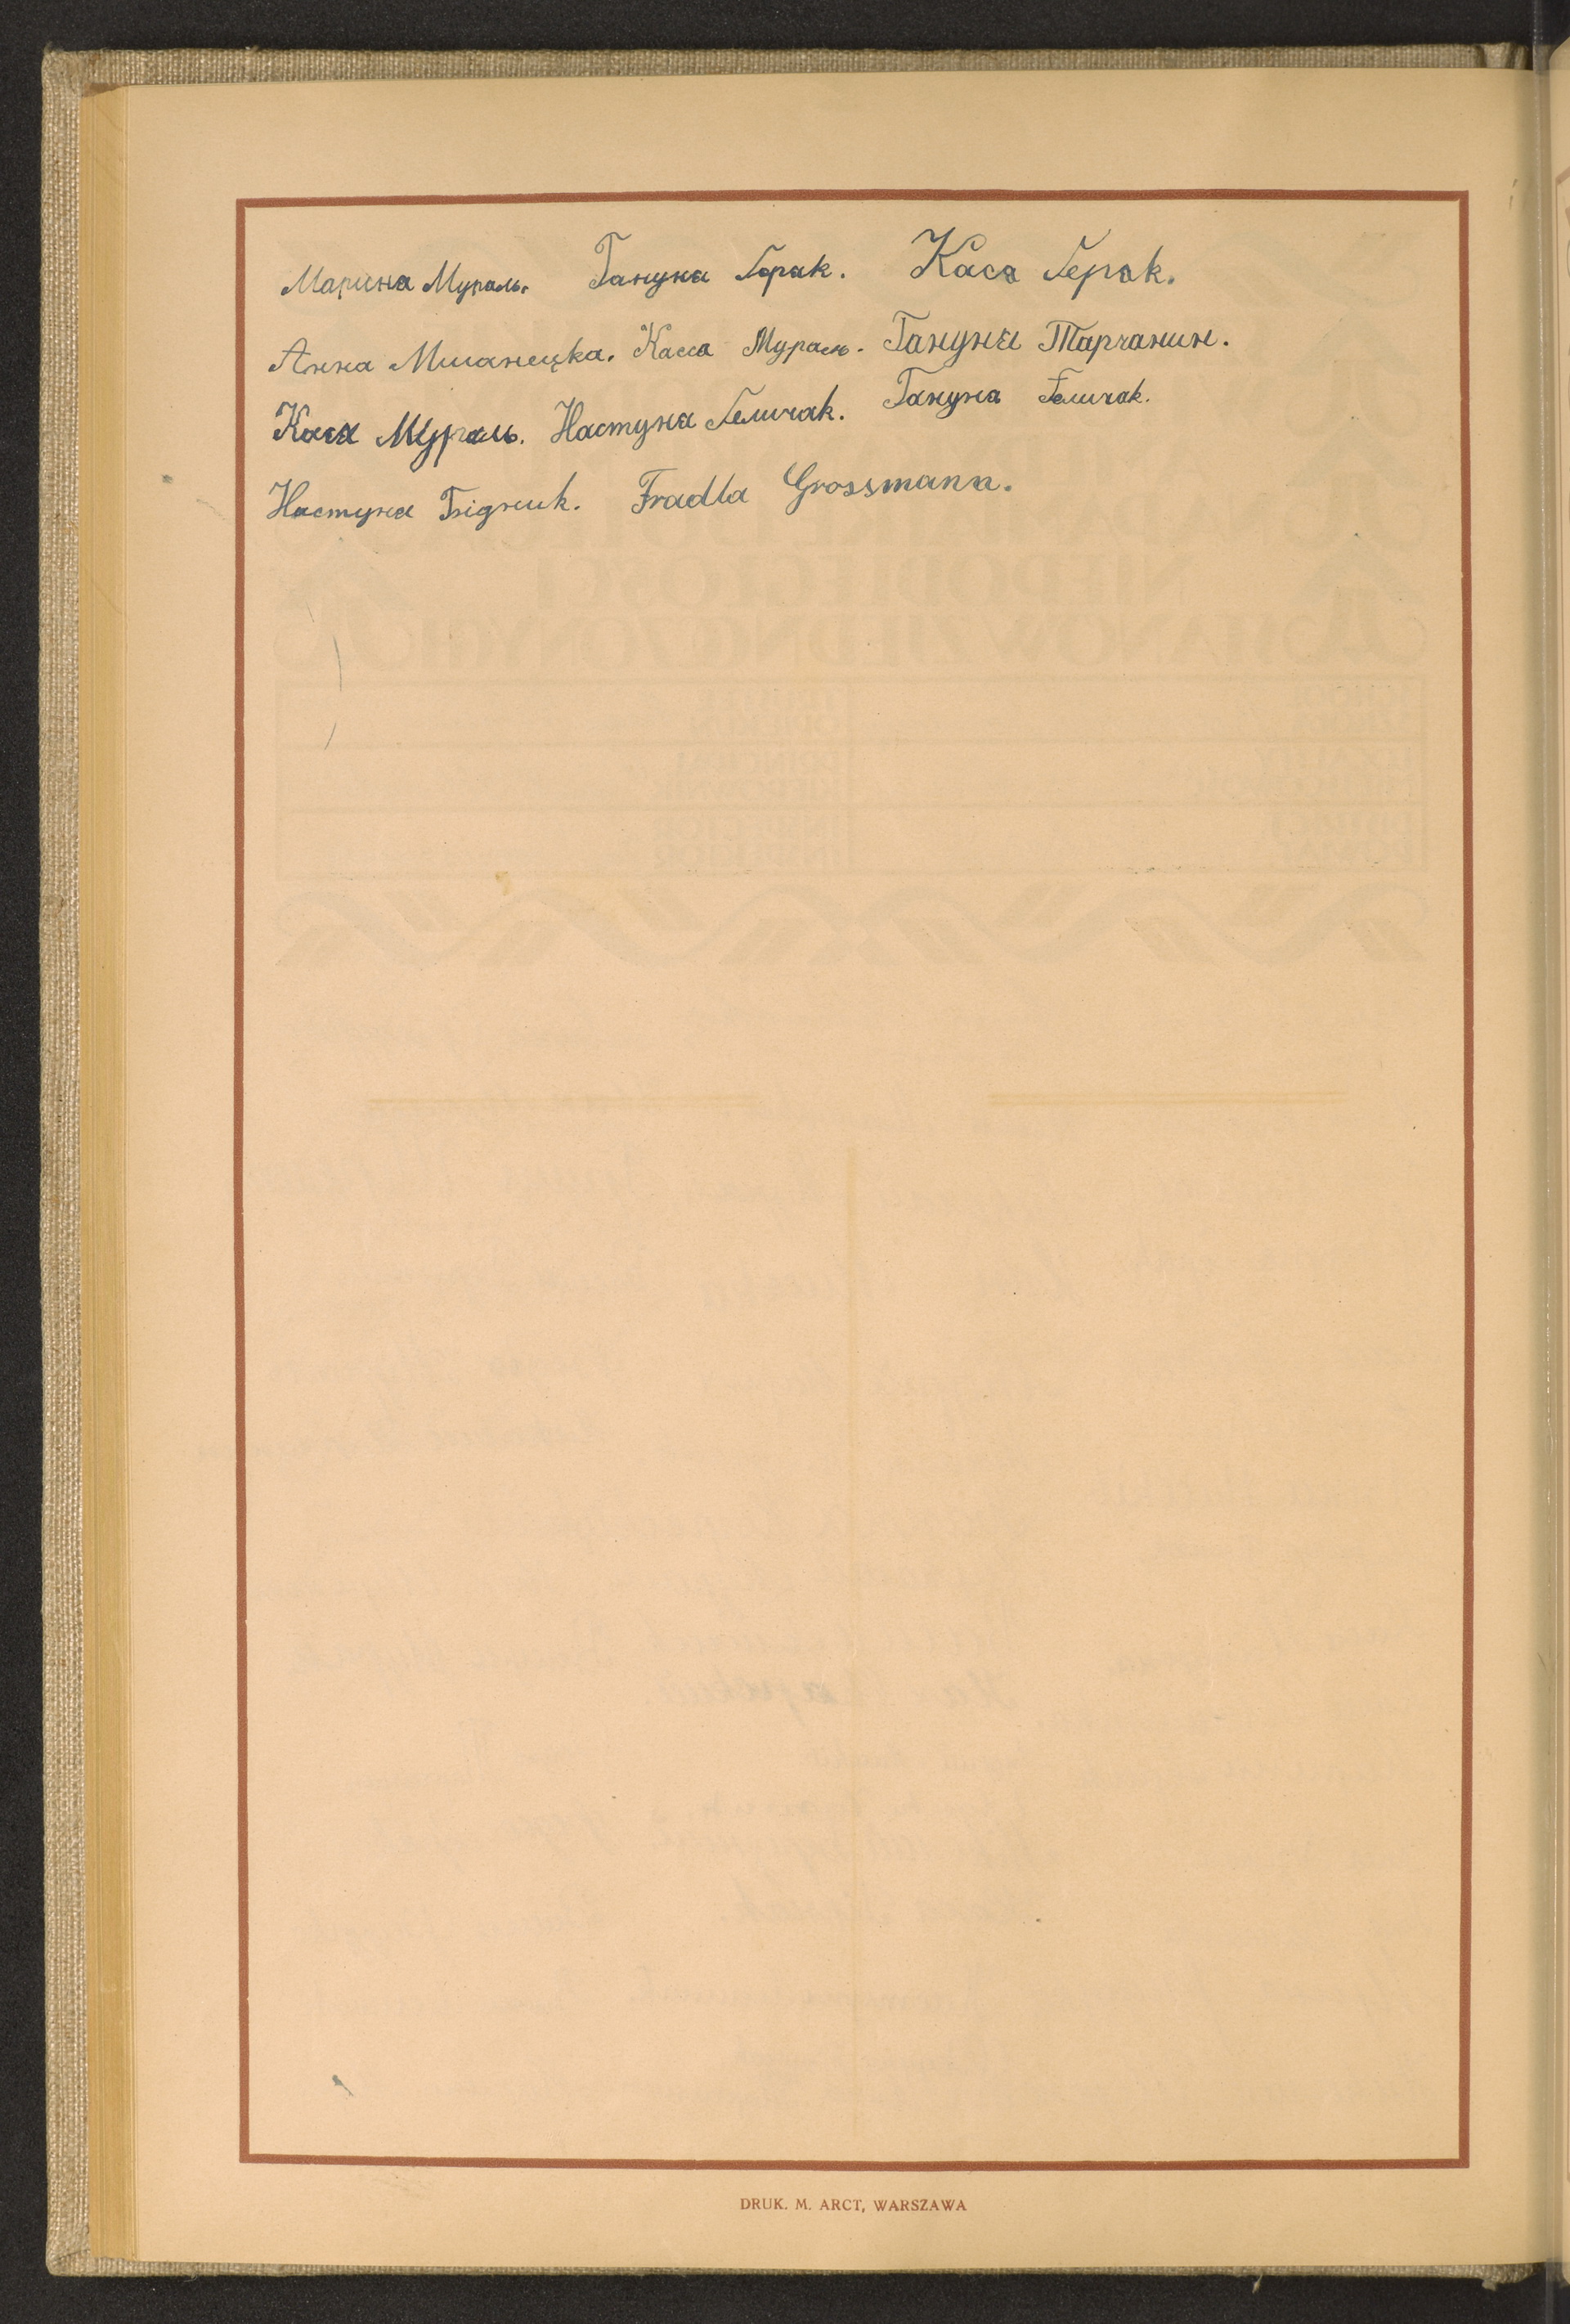 Марина Мураль. Гануня Герак. Кася Герак.
Анна Мшанецка. Касся Мураль. Гануня Тарчанин.
Кася Мураль. Настуня Геличак. Гануня Геличак.
Настуня Бідник. Fradla Grossmann.
DRUK. M. ARCT, WARSZAWA